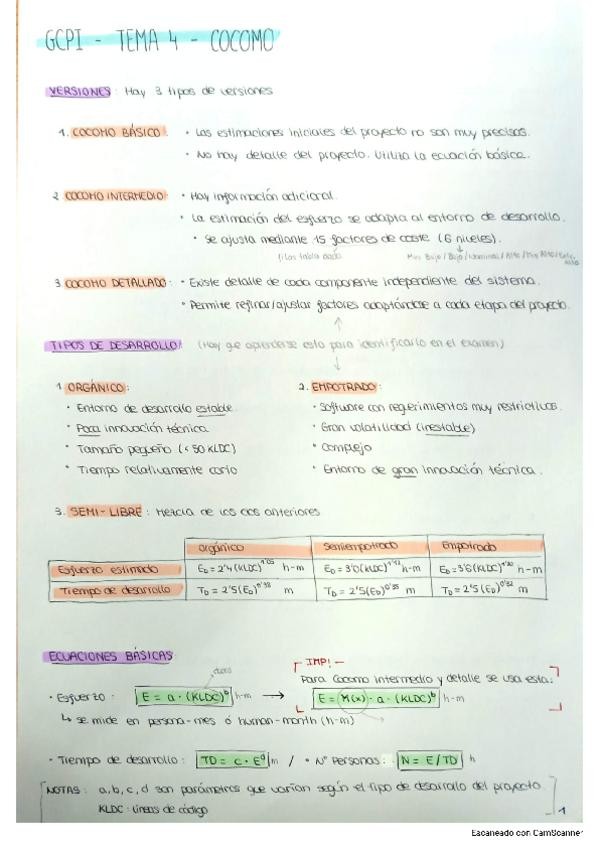 GCPI - TEMA 4 - COCOMO
VERSIONES: Hay 3 tipos de versiones
1. COCOMO BÁSICO: • Las estimaciones iniciales del proyecto no son muy precisas.
• No hay detalle del proyecto. Utiliza la ecuación básica.
2 COCOMO INTERMEDIO: • Hay información adicional.
• La estimación del esfuerzo se adapta al entorno de desarrollo.
• Se ajusta mediante 15 factores de coste (6 niveles).
tabla dada Muy Bajo/Bajo/Nominal/Alto/Muy Alto/Extr. alto
3 COCOMO DETALLADO: • Existe detalle de cada componente independiente del sistema.
• Permite refinar/ajustar factores adaptándose a cada etapa del proyecto.
TIPOS DE DESARROLLO: (Hay que aprenderse esto para identificarlo en el examen)
1 ORGÁNICO: 2. EMPOTRADO:
• Entorno de desarrollo estable • Software con requerimientos muy restrictivos.
• Poca innovación técnica. • Gran volatilidad (inestable)
• Tamaño pequeño (<50 KLDC) • Complejo
• Tiempo relativamente corto • Entorno de gran innovación técnica.
3. SEMI-LIBRE: Mezcla de los dos anteriores
Orgánico Semiempotrado Empotrado
Esfuerzo estimado ED = 2'4(KLDC)^1'05 h-m ED = 3'0(KLDC)^1'12 h-m ED = 3'6(KLDC)^1'20 h-m
Tiempo de desarrollo TD = 2'5(ED)^0'38 m TD = 2'5(ED)^0'35 m TD = 2'5(ED)^0'32 m
ECUACIONES BÁSICAS
IMP!
Para Cocomo intermedio y detalle se usa esta:
• Esfuerzo: E = a · (KLDC)^b h-m → E = M(x) · a · (KLDC)^b h-m
↳ se mide en persona-mes ó human-month (h-m)
• Tiempo de desarrollo: TD = c · E^d m / • Nº Personas: N = E/TD h
NOTAS: a, b, c, d son parámetros que varían según el tipo de desarrollo del proyecto.
KLDC: Líneas de código
1
Escaneado con CamScanner